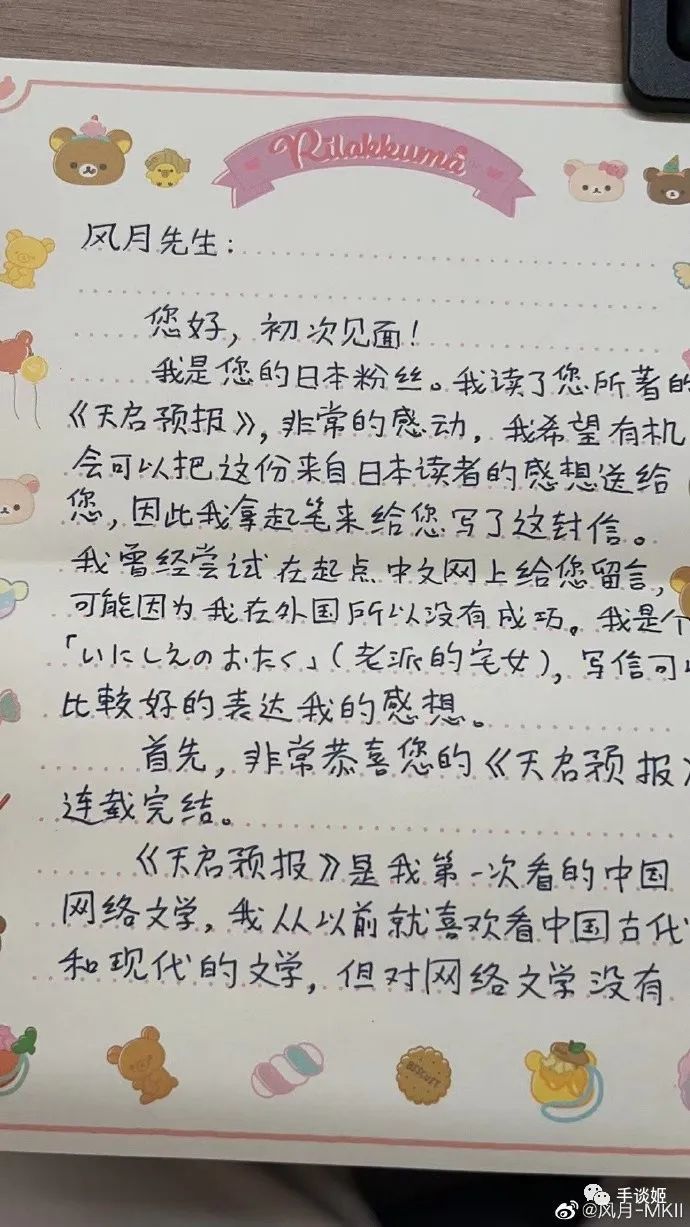 Rilakkuma
风月先生:
您好,初次见面!
我是您的日本粉丝。我读了您所著的
《天启预报》,非常的感动,我希望有机
会可以把这份来自日本读者的感想送给
您,因此我拿起笔来给您写了这封信。
我曾经尝试在起点中文网上给您留言,
可能因为我在外国所以没有成功。我是个
「いにしえのおたく」(老派的宅女),写信可以
比較好的表达我的感想。
首先,非常恭喜您的《天启预报》
连载完结。
《天启预报》是我第一次看的中国
网络文学,我从以前就喜欢看中国古代
和现代的文学,但对网络文学没有
BISCUIT
手谈姬
@风月-MKII